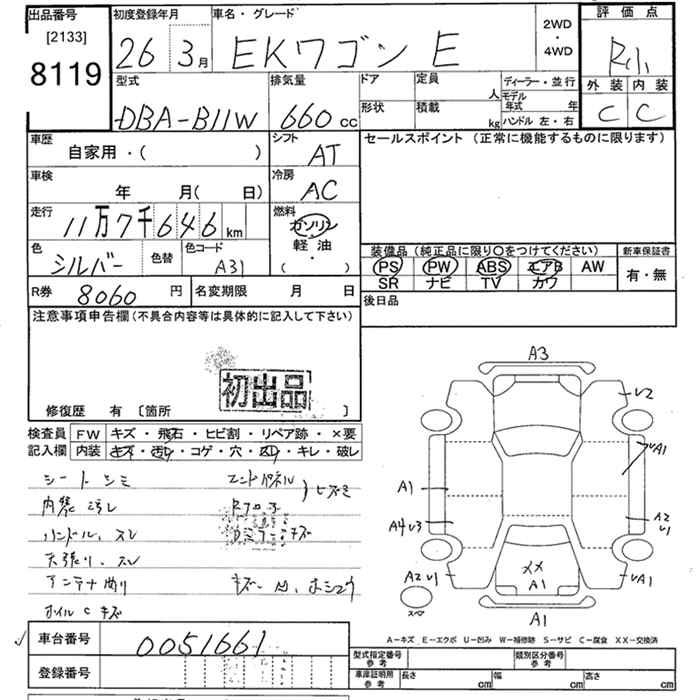 出品番号
[2133]
8119
初度登録年月
26 3月
車名・グレード
EKワゴン E
2WD
・
4WD
評価点
外装 内装
C C
型式
DBA-B11W
排気量
660 cc
ドア
形状
定員 人
積載 kg
ディーラー・並行
モデル
年式 年
ハンドル 左・右
車歴
自家用・( )
シフト
AT
車検
年 月( 日)
冷房
AC
走行
11万7千646km
燃料
ガソリン
・
軽油
( ・ )
色
シルバー
色替
色コード
A31
R券 8060 円
名変期限 月 日
セールスポイント (正常に機能するものに限ります)
装備品 (純正品に限り○をつけてください)
PS PW ABS エアB AW
SR ナビ TV カワ
新車保証書
有・無
後日品
注意事項申告欄(不具合内容等は具体的に記入して下さい)
初出品
修復歴 有 [箇所 ]
検査員
記入欄
FW キズ・飛石・ヒビ割・リペア跡・×要
内装 キズ・汚レ・コゲ・穴・凹レ・キレ・破レ
シートシミ
内装汚レ
ハンドル、スレ
天張り、スレ
ホイルCキズ
エンドパネル
A3
V2
VA1
A1
A4 V3
A2
V1
A2 V1
XX
A1
VA1
スペア
A1
A-キズ E-エクボ U-凹み W-補修跡 S-サビ C-腐食 XX-交換済
車台番号 0051661
登録番号
型式指定番号
参考
類別区分番号
参考
車庫証明用
参考
長さ cm 幅 cm 高さ cm